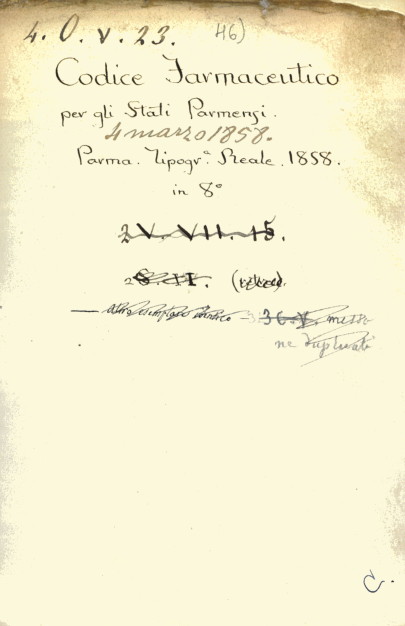 4. O. V. 23. 46)
Codice Farmaceutico
per gli Stati Parmensi.
4 marzo 1858.
Parma. Tipogr.ª Reale. 1858.
in 8°
2 V. VII. 15.
2 S. II.
altro esemplare identico — 36. V. messo
ne duplicati
C.